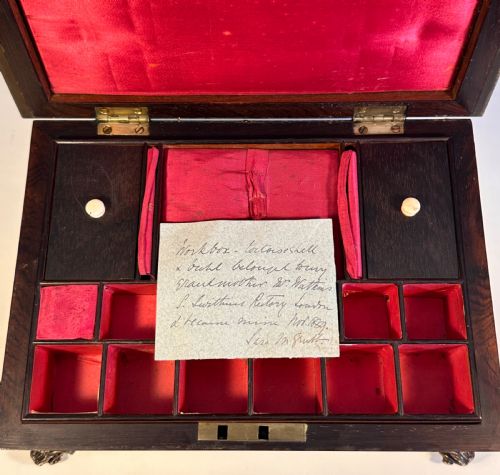 Workbox - tortoiseshell
& belonged to my
grandmother Mrs Watkins
St Swithins Rectory London
& became mine Nov.